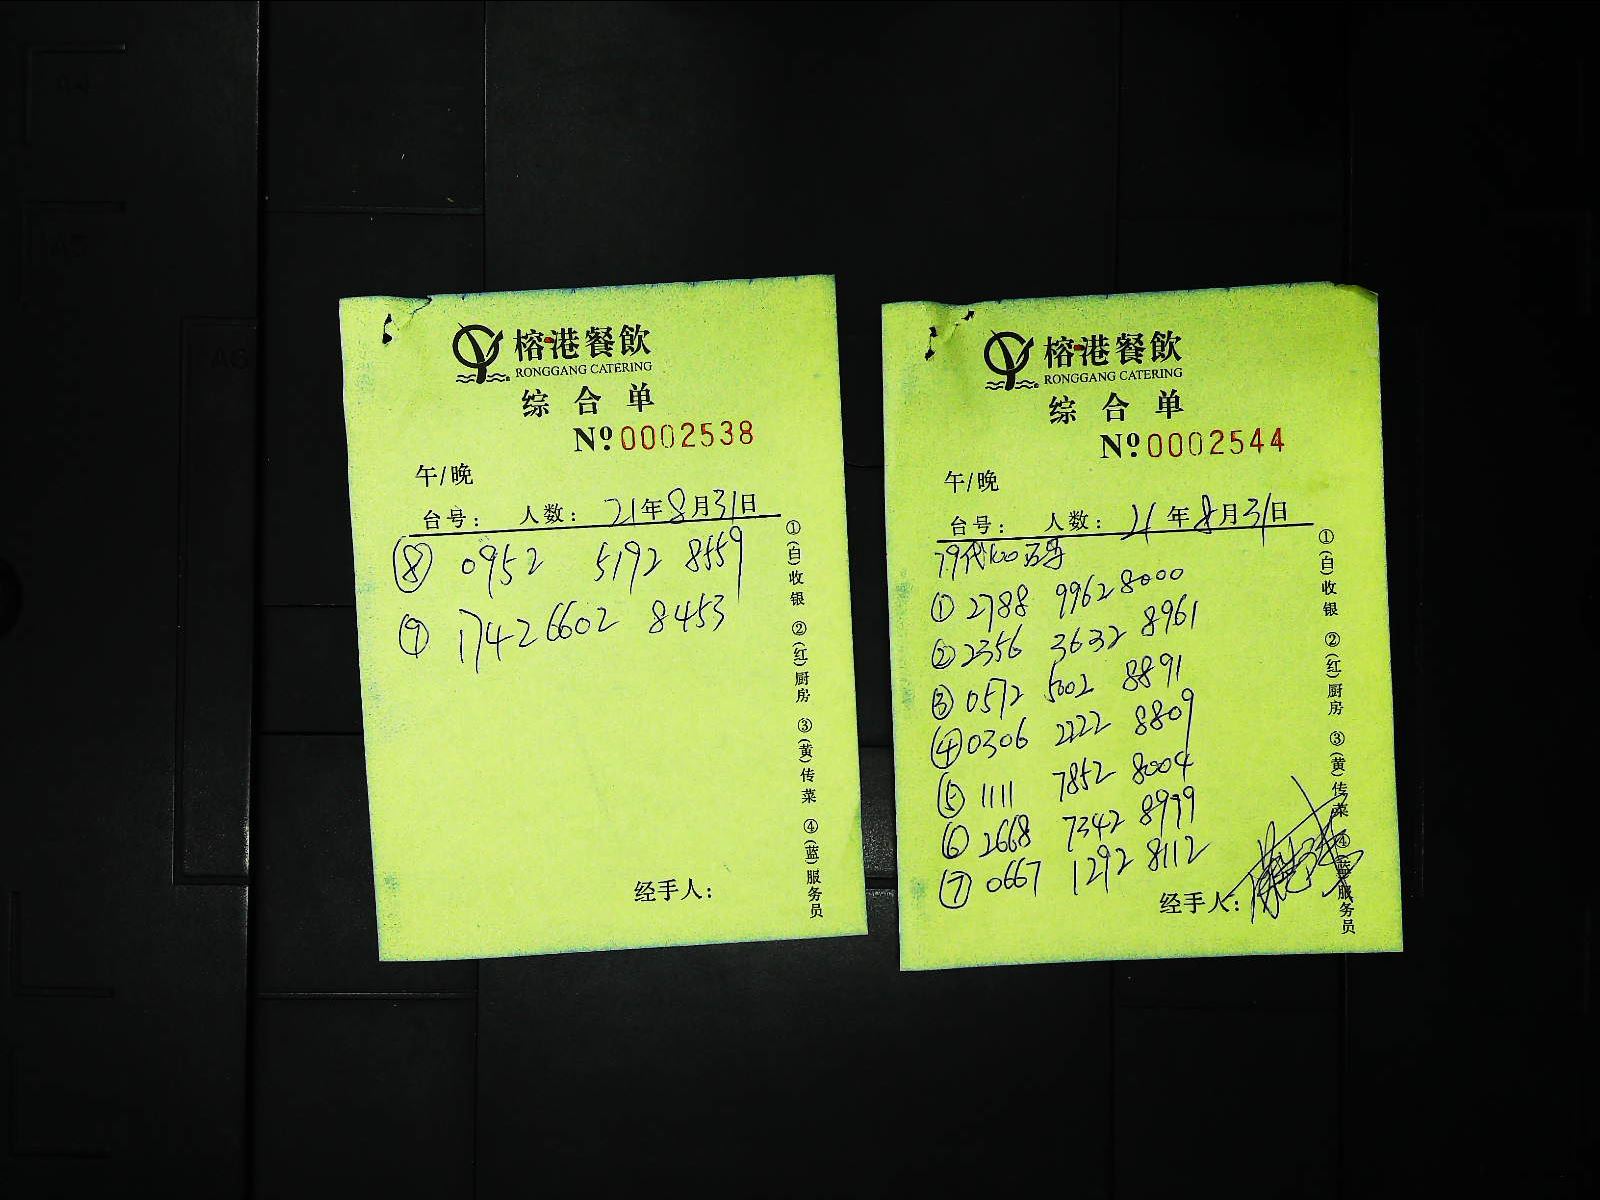 榕港餐飲
RONGGANG CATERING
综合单
Nº 0002538
午/晚
台号： 人数： 21年8月31日
⑧ 0952 5192 8559
⑨ 1742 6602 8453
经手人：
①(白)收银 ②(红)厨房 ③(黄)传菜 ④(蓝)服务员
榕港餐飲
RONGGANG CATERING
综合单
Nº 0002544
午/晚
台号： 人数： 21年8月31日
79代100
① 2788 9962 8000
② 2356 3632 8961
③ 0572 5002 8891
④ 0306 2222 8809
⑤ 1111 7852 8004
⑥ 2668 7342 8999
⑦ 0667 1292 8112
经手人：
①(白)收银 ②(红)厨房 ③(黄)传菜 ④(蓝)服务员